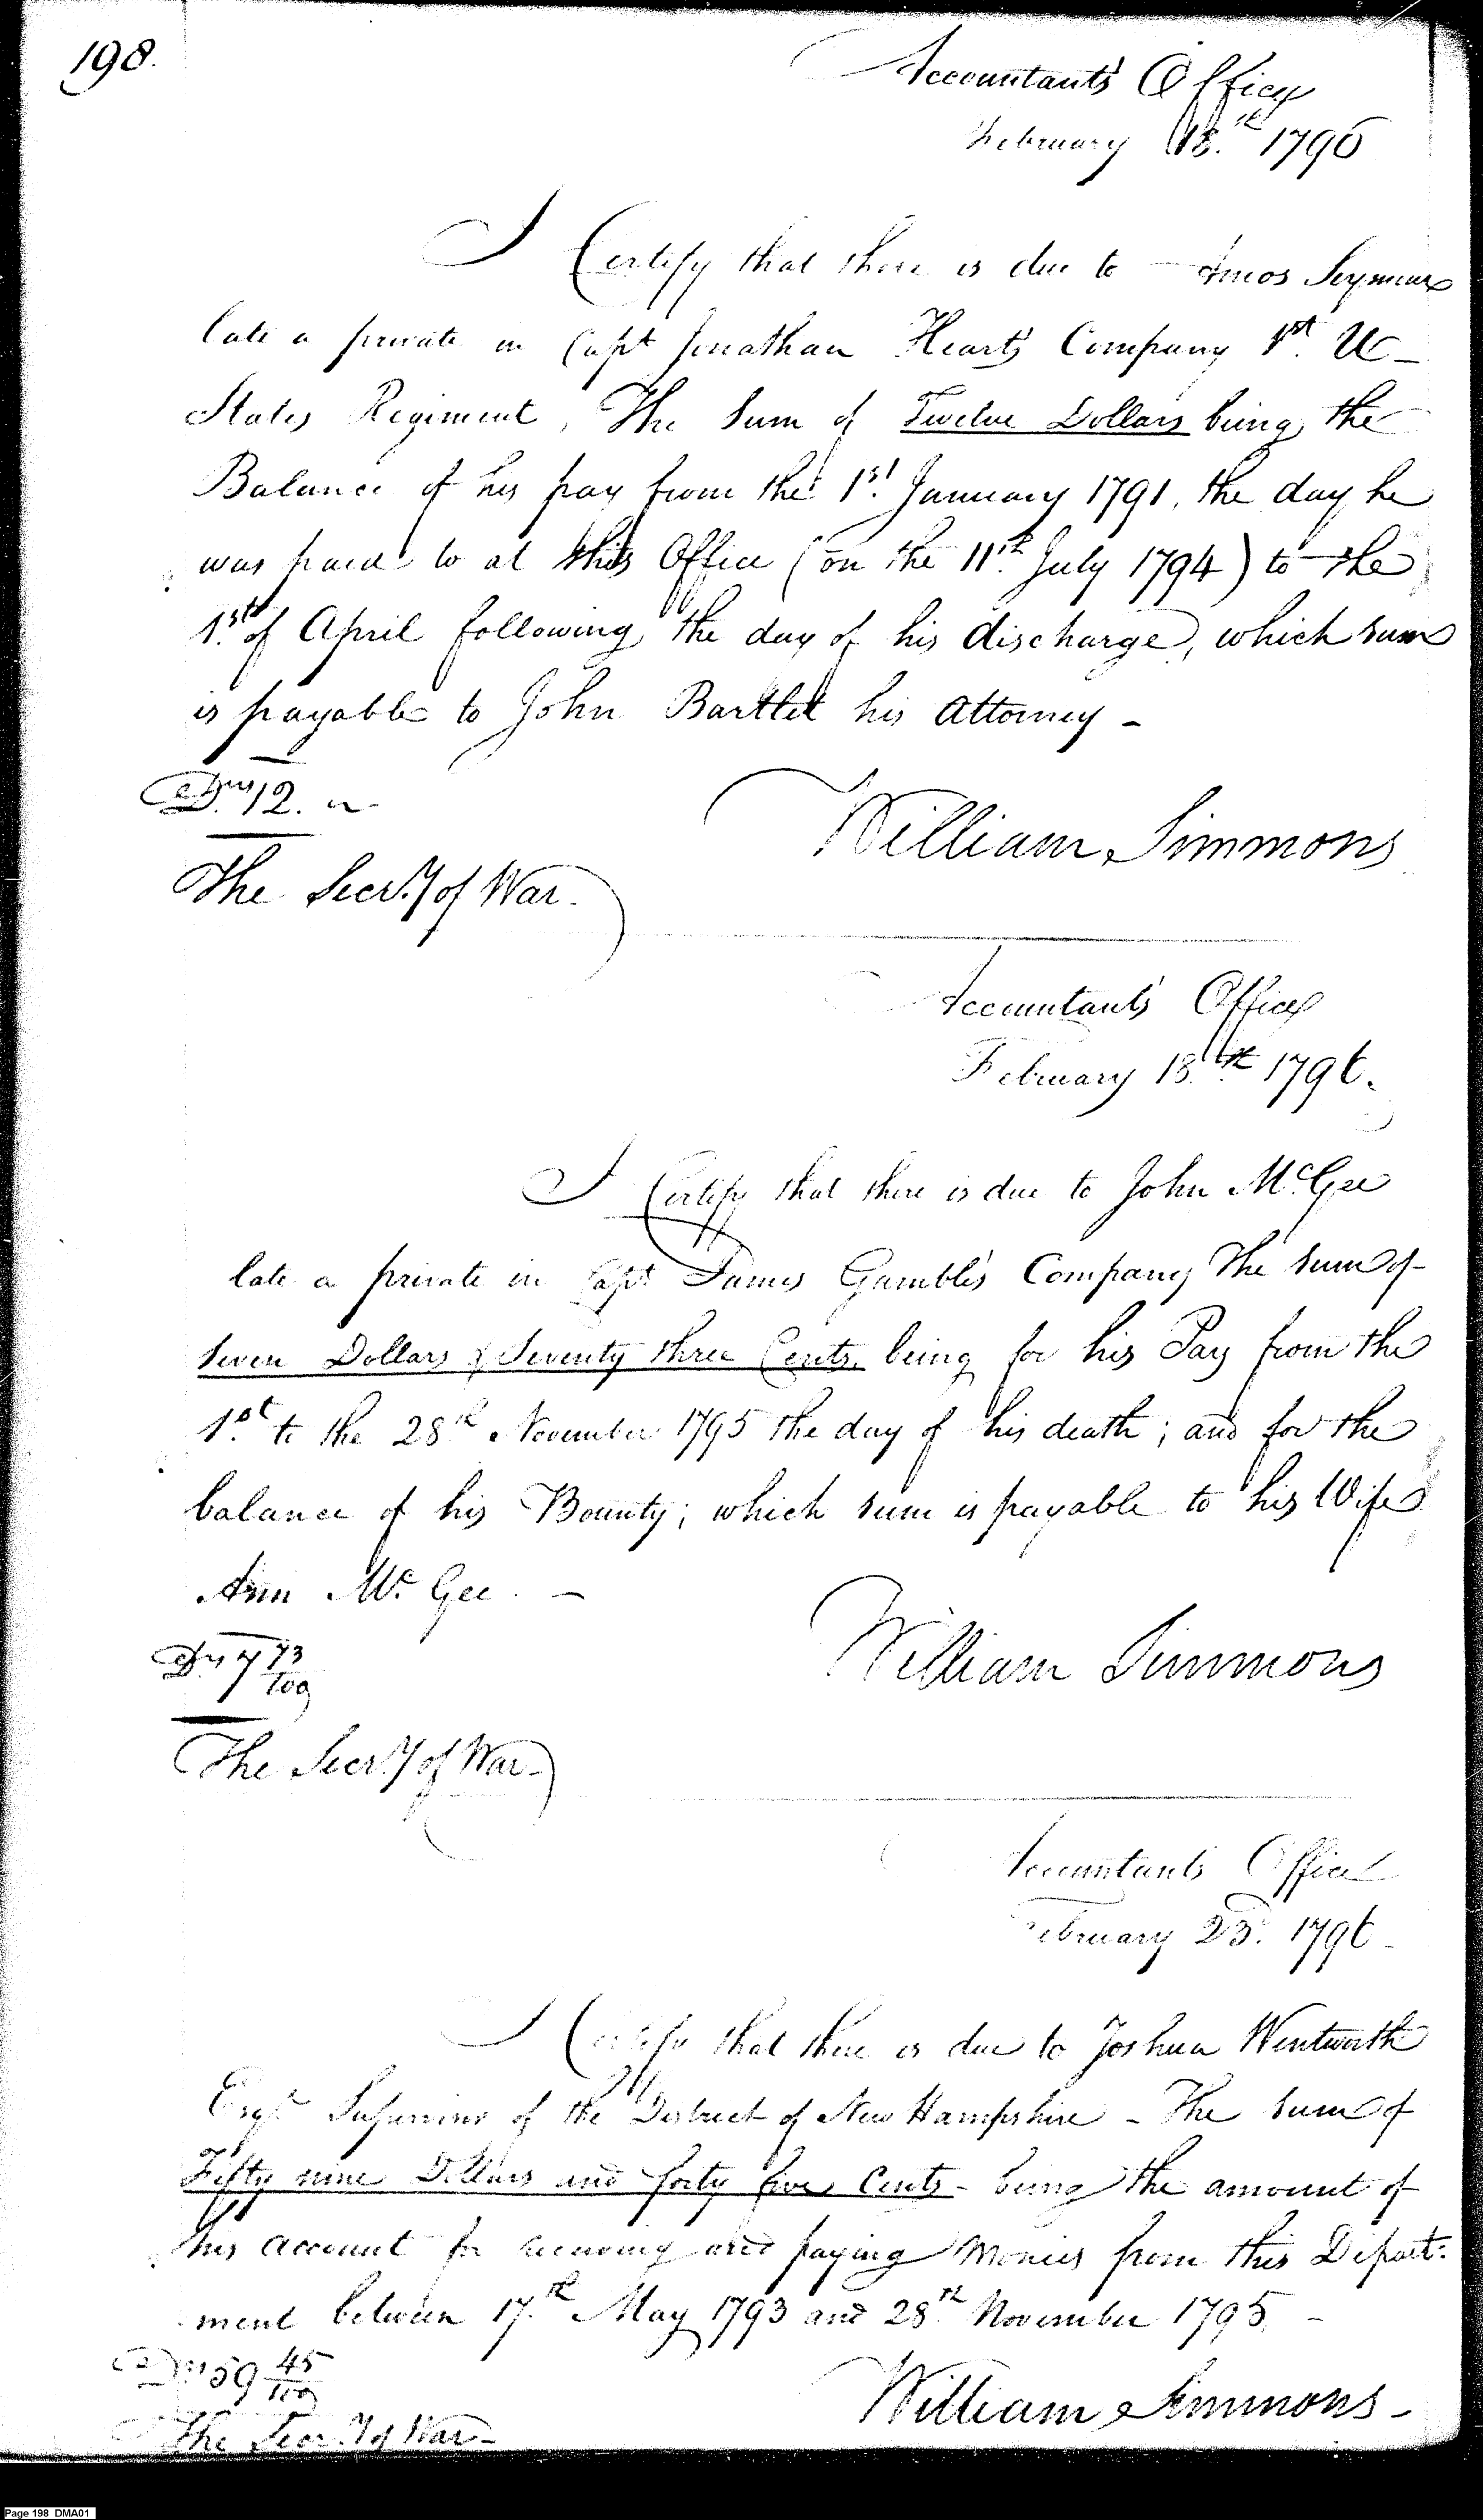 198.
Accountant's Office
February 18.th 1796
I Certify that there is due to Amos Seymour
late a private in Capt Jonathan Heart's Company 1st. U
States Regiment, The Sum of Twelve Dollars being the
Balance of his pay from the 1st. January 1791, the day he
was paid to at this Office (on the 11th. July 1794) to the
1st. of April following the day of his discharge, which sum
is payable to John Bartlet his Attorney -
Drs. 12.
William Simmons
The Secr.y of War.
Accountant's Office
February 18.th 1796.
I Certify that there is due to John McGee
late a private in Capt. James Gamble's Company The sum of
Seven Dollars & Seventy three Cents. being for his Pay from the
1st. to the 28th November 1795 the day of his death; and for the
balance of his Bounty; which sum is payable to his Wife
Ann Mc. Gee. -
Drs 7 73/100
William Simmons
The Secr.y of War -
Accountant's Office
February 23d. 1796
I Certify that there is due to Joshua Wentworth
Esqr. Supervisor of the District of New Hampshire - The sum of
Fifty nine Dollars and forty five Cents - being the amount of
his account for receiving and paying Monies from this Depart:
ment between 17.th May 1793 and 28th. November 1795. -
Drs 59 45/100
William Simmons -
The Secr.y of War -
Page 198 DMA01